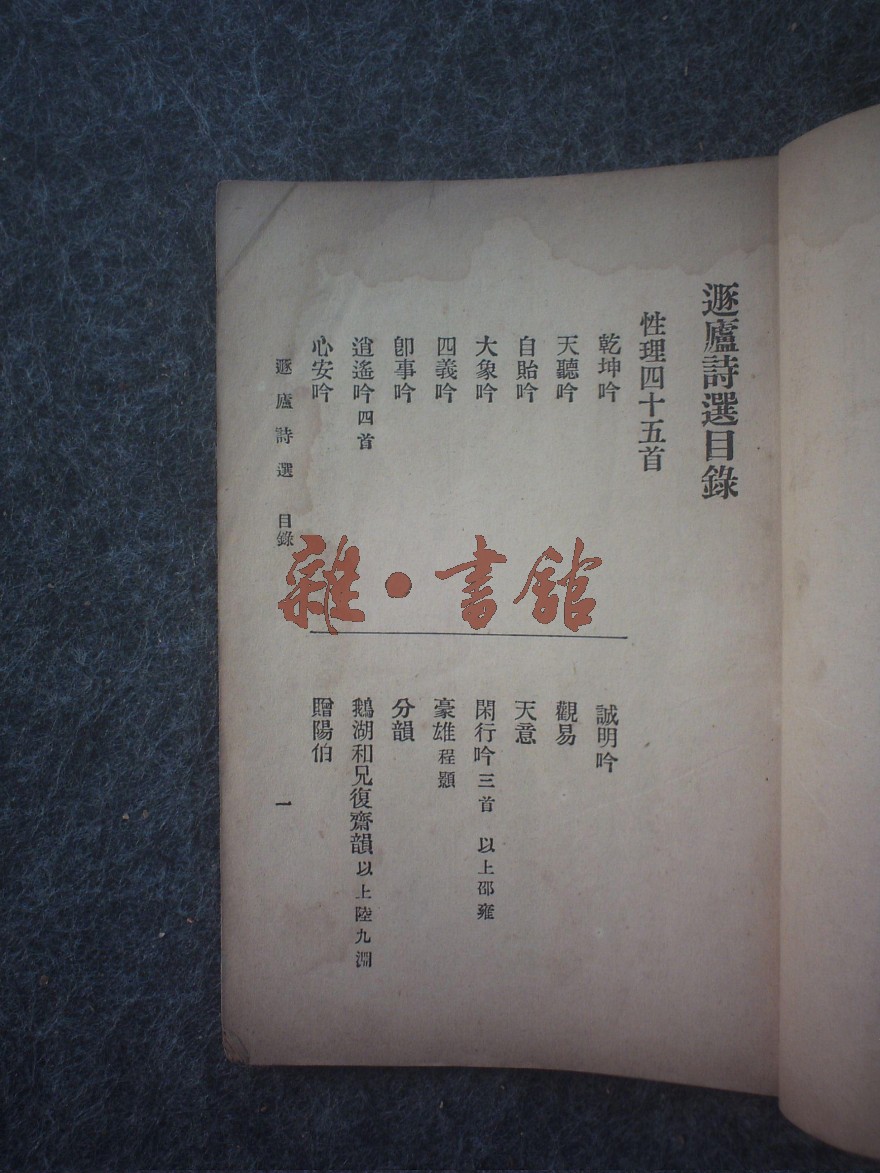 遯廬詩選目錄
性理四十五首
乾坤吟
天聽吟
自貽吟
大象吟
四義吟
卽事吟
逍遙吟四首
心安吟
誠明吟
觀易
天意
閑行吟三首 以上邵雍
豪雄程顥
分韻
鵝湖和兄復齋韻以上陸九淵
贈陽伯
遯廬詩選 目錄
一
雜·書館